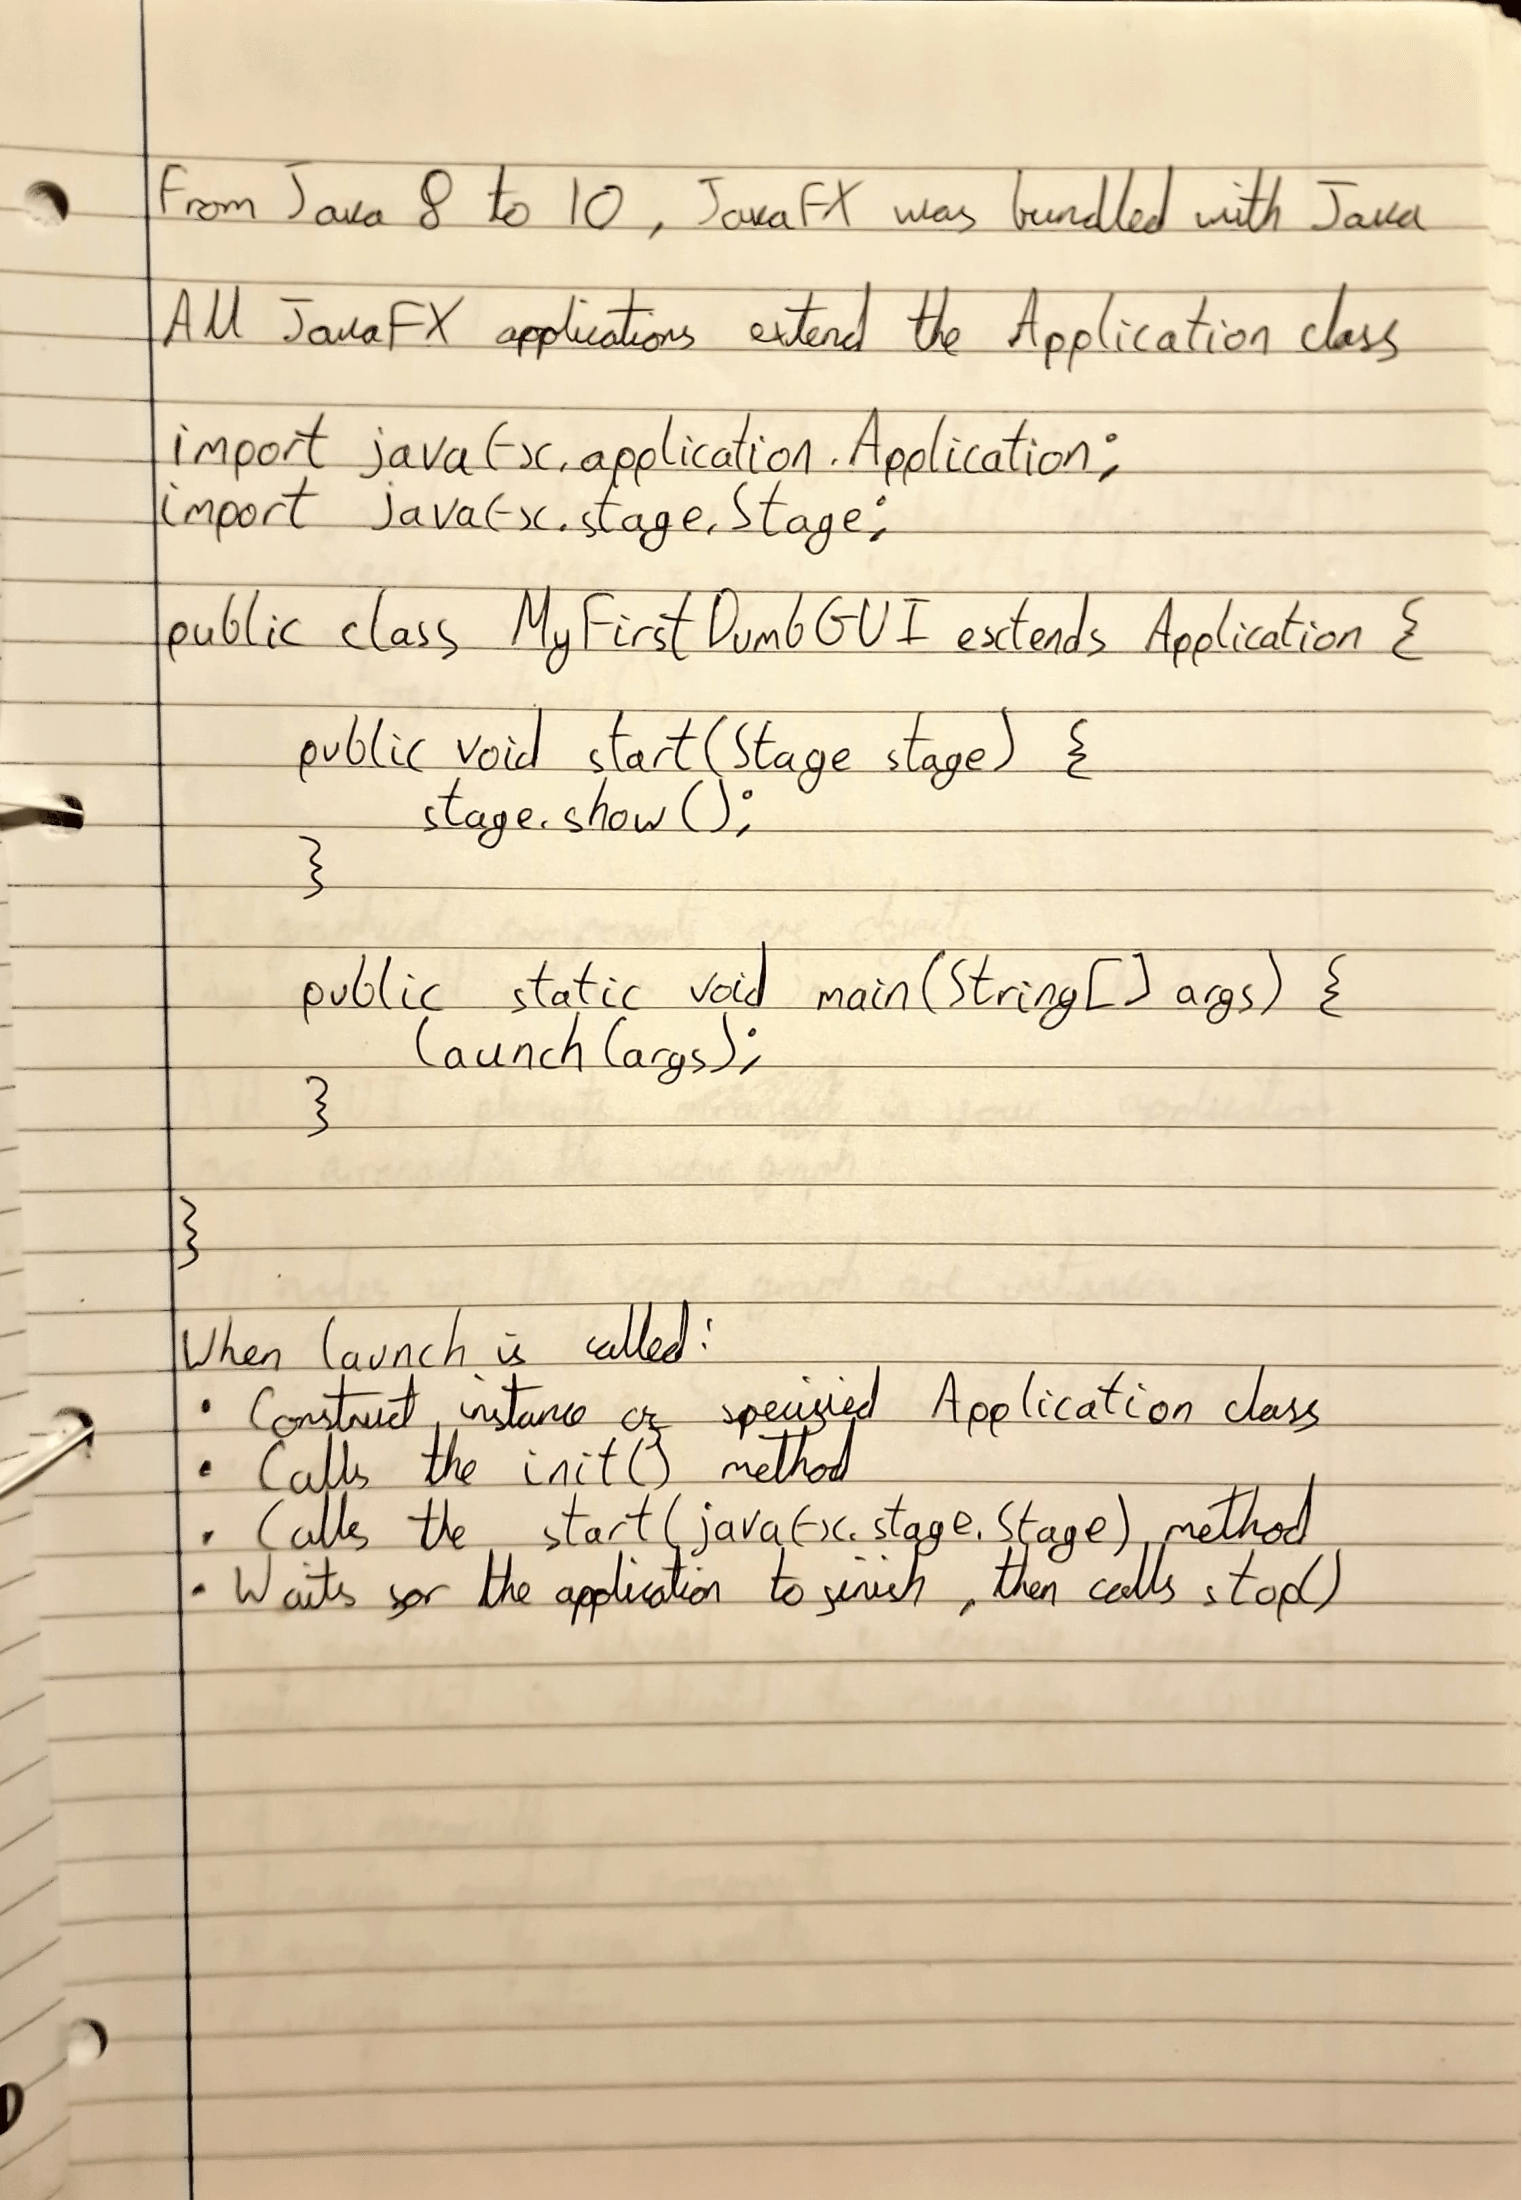 From Java 8 to 10, JavaFX was bundled with Java
All JavaFX applications extend the Application class
import javafx.application.Application;
import javafx.stage.Stage;
public class MyFirstDumbGUI extends Application {
public void start(Stage stage) {
stage.show();
}
public static void main(String[] args) {
launch(args);
}
}
When launch is called:
• Construct instance of specified Application class
• Calls the init() method
• Calls the start(javafx.stage.Stage) method
• Waits for the application to finish, then calls stop()